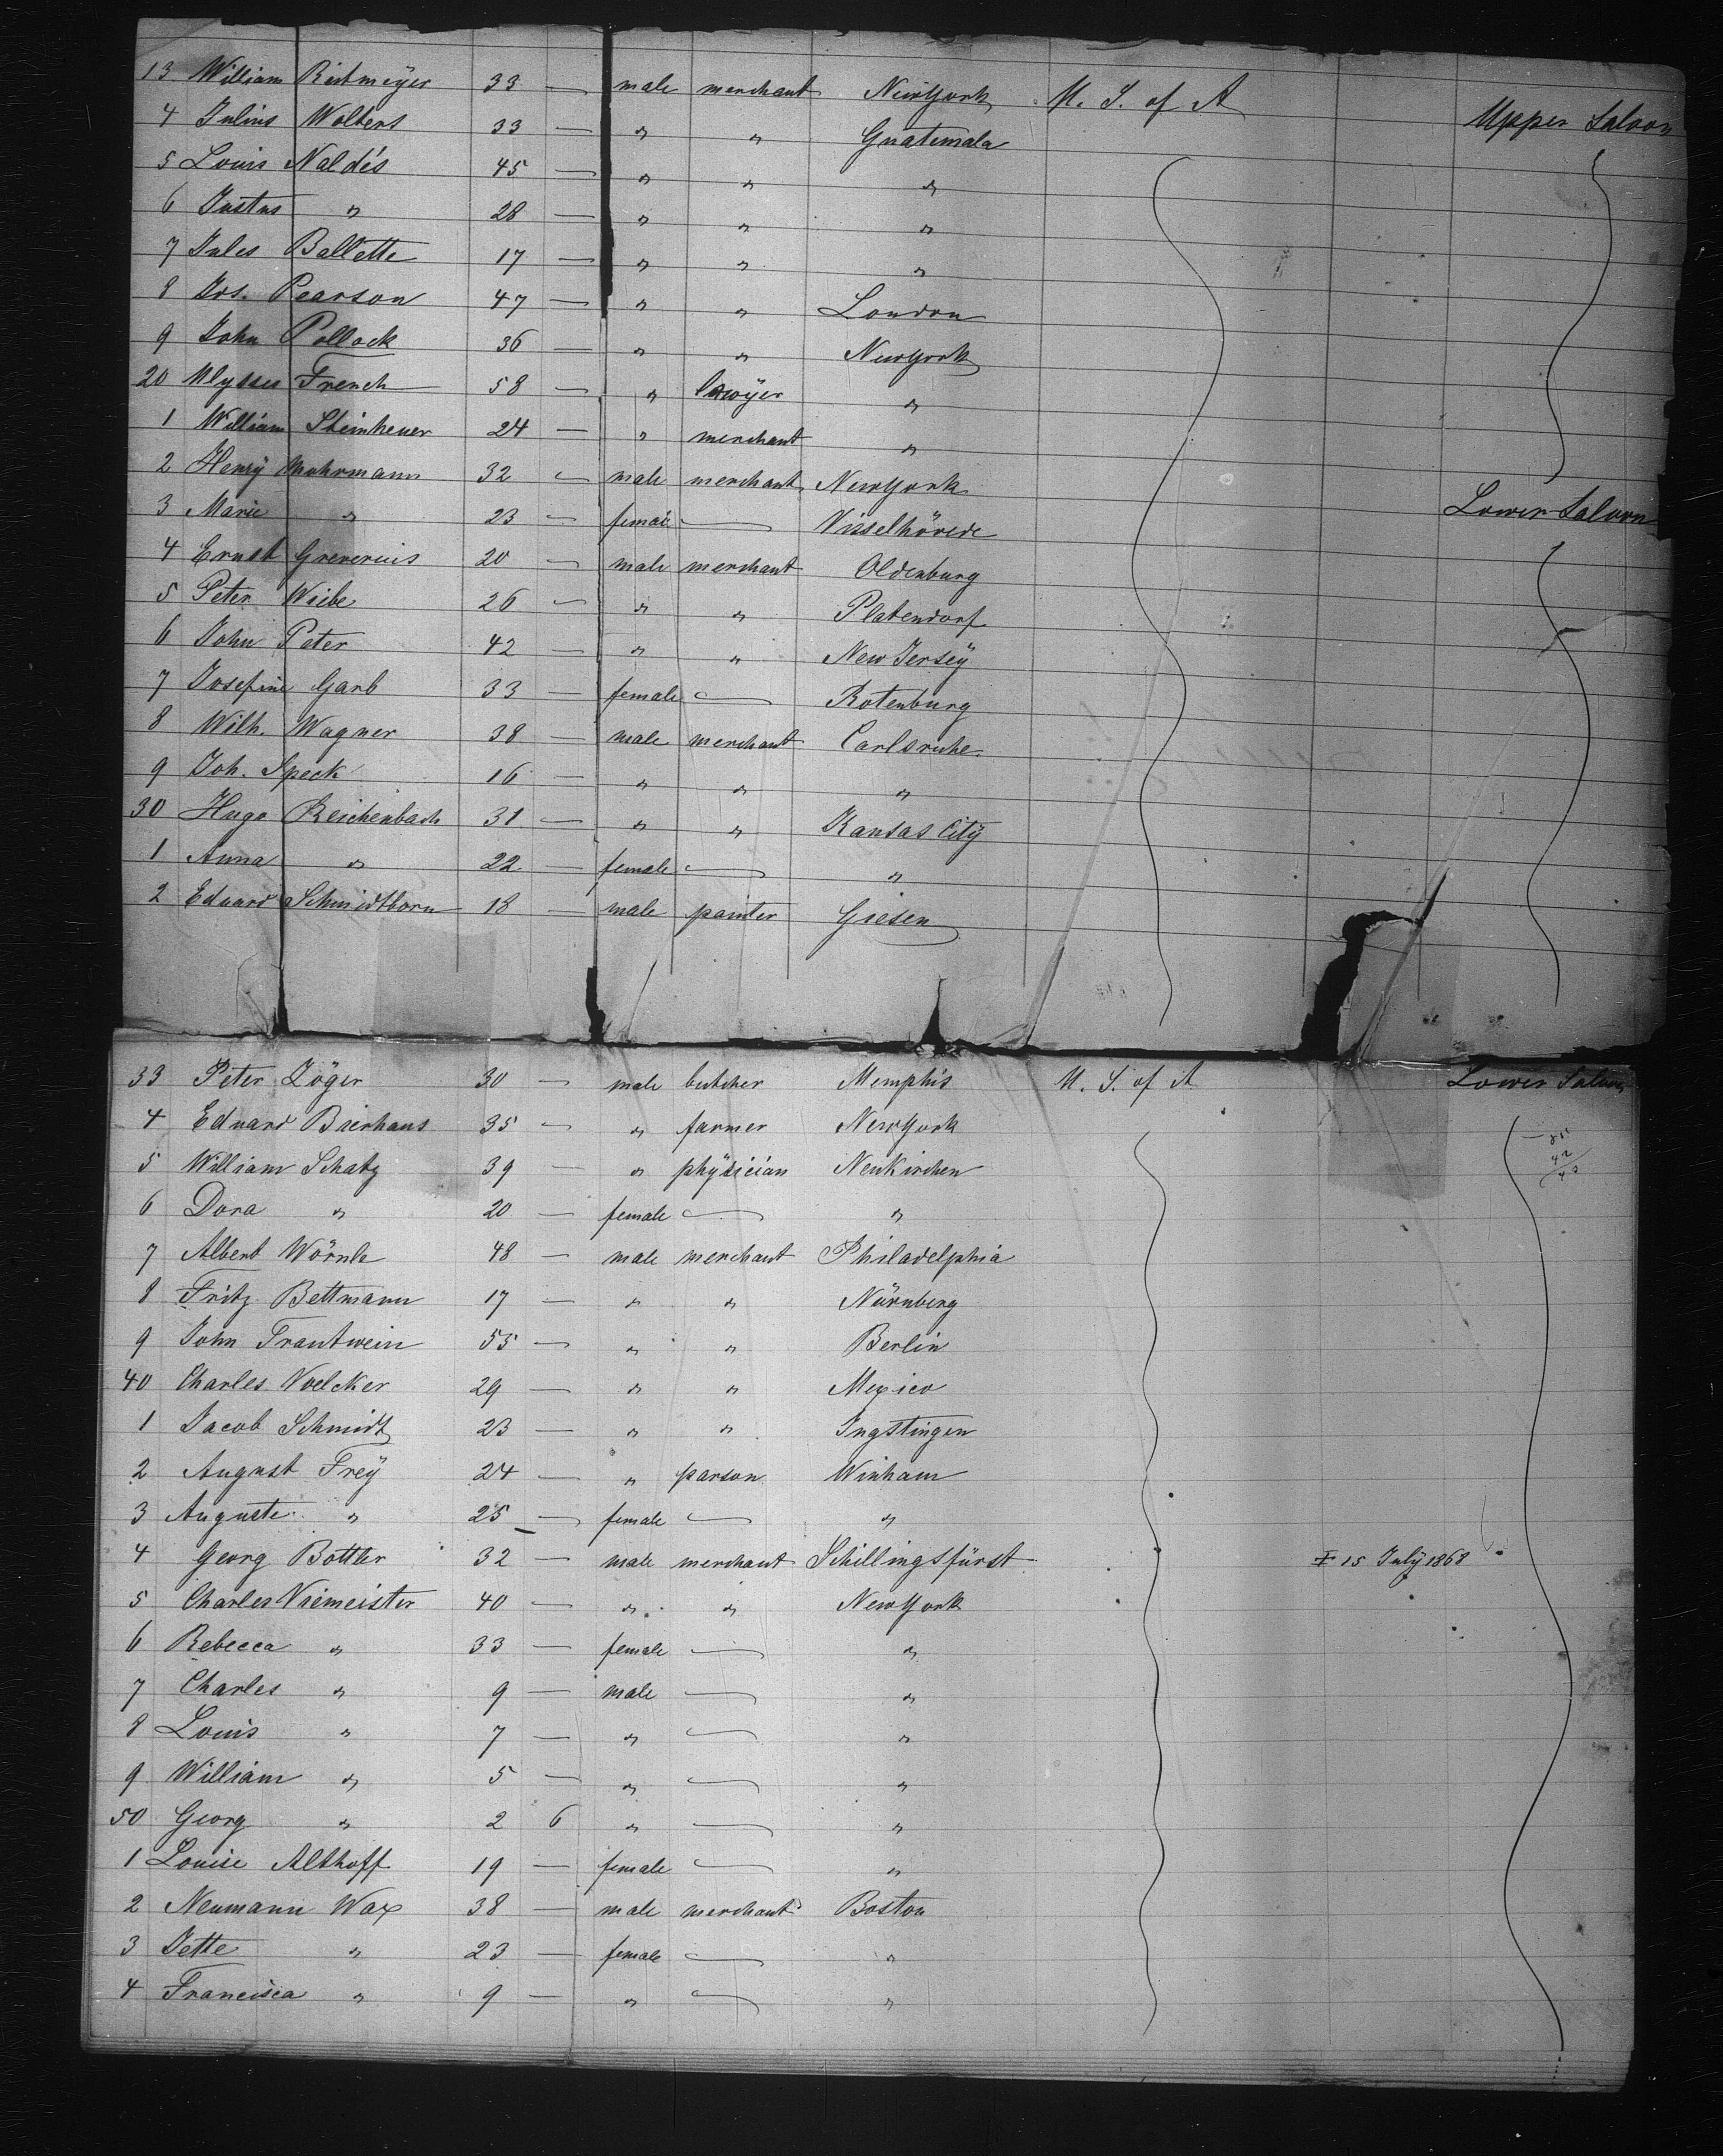 13 William Ristmeyer 33 — male merchant New York U. S. of A Upper Saloon
4 Julius Wolters 33 — " " Guatemala
5 Louis Naldés 45 — " " "
6 Justus " 28 — " " "
7 Jules Ballette 17 — " " "
8 Jos. Pearson 47 — " " London
9 John Pollock 36 — " " New York
20 Ulysses French 58 — " lawyer "
1 William Steinheuer 24 — " merchant "
2 Henry Muhrmann 32 — male merchant New York
3 Marie " 23 — female — Visselhövede Lower Saloon
4 Ernst Greverius 20 — male merchant Oldenburg
5 Peter Wiebe 26 — " " Platendorf
6 John Peter 42 — " " New Jersey
7 Josefine Garb 33 — female — Rotenburg
8 Wilh. Wagner 38 — male merchant Carlsruhe
9 Joh. Speck 16 — " " "
30 Hugo Reichenbach 31 — " " Kansas City
1 Anna " 22 — female — "
2 Eduard Schmidtborn 18 — male painter Giesen
33 Peter Jöger 30 — male butcher Memphis U. S. of A Lower Saloon
4 Eduard Bierhaus 35 — " farmer New York
5 William Schatz 39 — " physician Neukirchen
6 Dora " 20 — female — "
7 Albert Wörnle 48 — male merchant Philadelphia
8 Fritz Bettmann 17 — " " Nürnberg
9 John Trautwein 55 — " " Berlin
40 Charles Voelcker 29 — " " Mexico
1 Jacob Schmidt 23 — " " Ingstingen
2 August Frey 24 — " parson Winham
3 Auguste " 25 — female — "
4 Georg Bottler 32 — male merchant Schillingsfürst 15 July 1868
5 Charles Niemeister 40 — " " New York
6 Rebecca " 33 — female — "
7 Charles " 9 — male — "
8 Louis " 7 — " — "
9 William " 5 — " — "
50 Georg " 2 6 " — "
1 Louise Althoff 19 — female — "
2 Neumann Wax 38 — male merchant Boston
3 Jette " 23 — female — "
4 Francisca " 9 — " — "